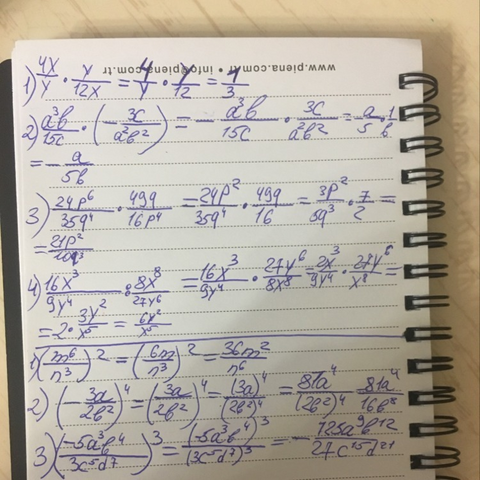 www.piena.com.tr • info@piena.com.tr
1) 4x/y · y/12x = 4/y · y/12 = 1/3
2) a³b/15c · (- 3c/a²b²) = - a³b/15c · 3c/a²b² = a/5 · 1/b
= - a/5b
3) 24p⁶/35q⁴ · 49q/16p⁴ = 24p²/35q⁴ · 49q/16 = 3p²/5q³ · 7/2 =
= 21p²/10q³
4) 16x³/9y⁴ : 8x⁸/27y⁶ = 16x³/9y⁴ · 27y⁶/8x⁸ = 2x³/9y⁴ · 27y⁶/x⁸ =
= 2 · 3y²/x⁵ = 6y²/x⁵
1) (m⁶/n³)² = (6m/n³)² = 36m²/n⁶
2) (- 3a/2b²)⁴ = (3a/2b²)⁴ = (3a)⁴/(2b²)⁴ = 81a⁴/(2b²)⁴ = 81a⁴/16b⁸
3) (-5a³b⁴/3c⁵d⁷)³ = (-5a³b⁴)³/(3c⁵d⁷)³ = - 125a⁹b¹²/27c¹⁵d²¹